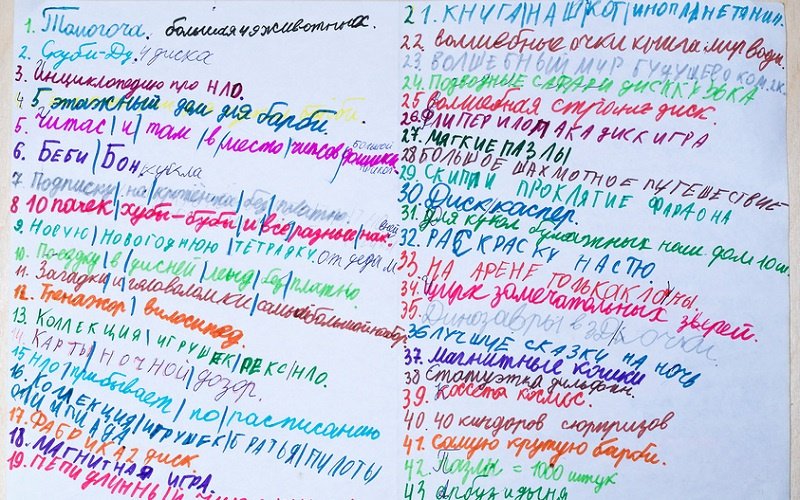 1. Тамагоча. большая 4 животных.
2. Скуби-Ду 4 диска
3. Инциклопедию про НЛО.
4 5 этажный дом для барби.
5. Читас | и | там | в | место | чипсов
6. Беби | Бон кукла
7. Подписку | на | бесплатно.
8 10 пачек | хуби-буби | и | все | разные | нак.
9. Новую | новогоднюю | тетрадку. от деды м
10. Поездку | в | дисней | ленд | бесплатно
11. Загадки | и | головоломки | самый большой набор
12. Тренажор | велосипед.
13. Коллекция | игрушек | рекс | НЛО.
14. Карты | ночной | дозор.
15 НЛО | прибывает | по | расписанию
16. Коллекция | игрушек | братья | пилоты
олимпиада
17. Фабрика 2 диск.
18. Магнитная игра.
19. Пепи длинный
21. Книга | наш кот | инопланетянин.
22. Волшебные очки книга мир воды.
23. Волшебный мир будущего ком. 2к.
24. Подводные сафари диск кузка
25 волшебная строние диск.
26. Флипер и лопака диск игра
27. Мягкие пазлы
28 Большое шахмотное путешествие
29. Скипи проклятие фараона
30. Диск каспер.
31. Для кукол бумажных наш. дом 10 ш.
32. Раскраску Настю
33. На арене только клоны.
34. Цирк замечательных зверей.
35. Динозавры в 3D очки.
36 Лучшие сказки на ночь
37. Магнитные кошки
38 Статуэтка дильфин.
39. Коссета космос.
40. 40 киндоров сюрпризов
41. Самую крутую барби.
42. Пазлы = 1000 штук
43 арбуз и дыня